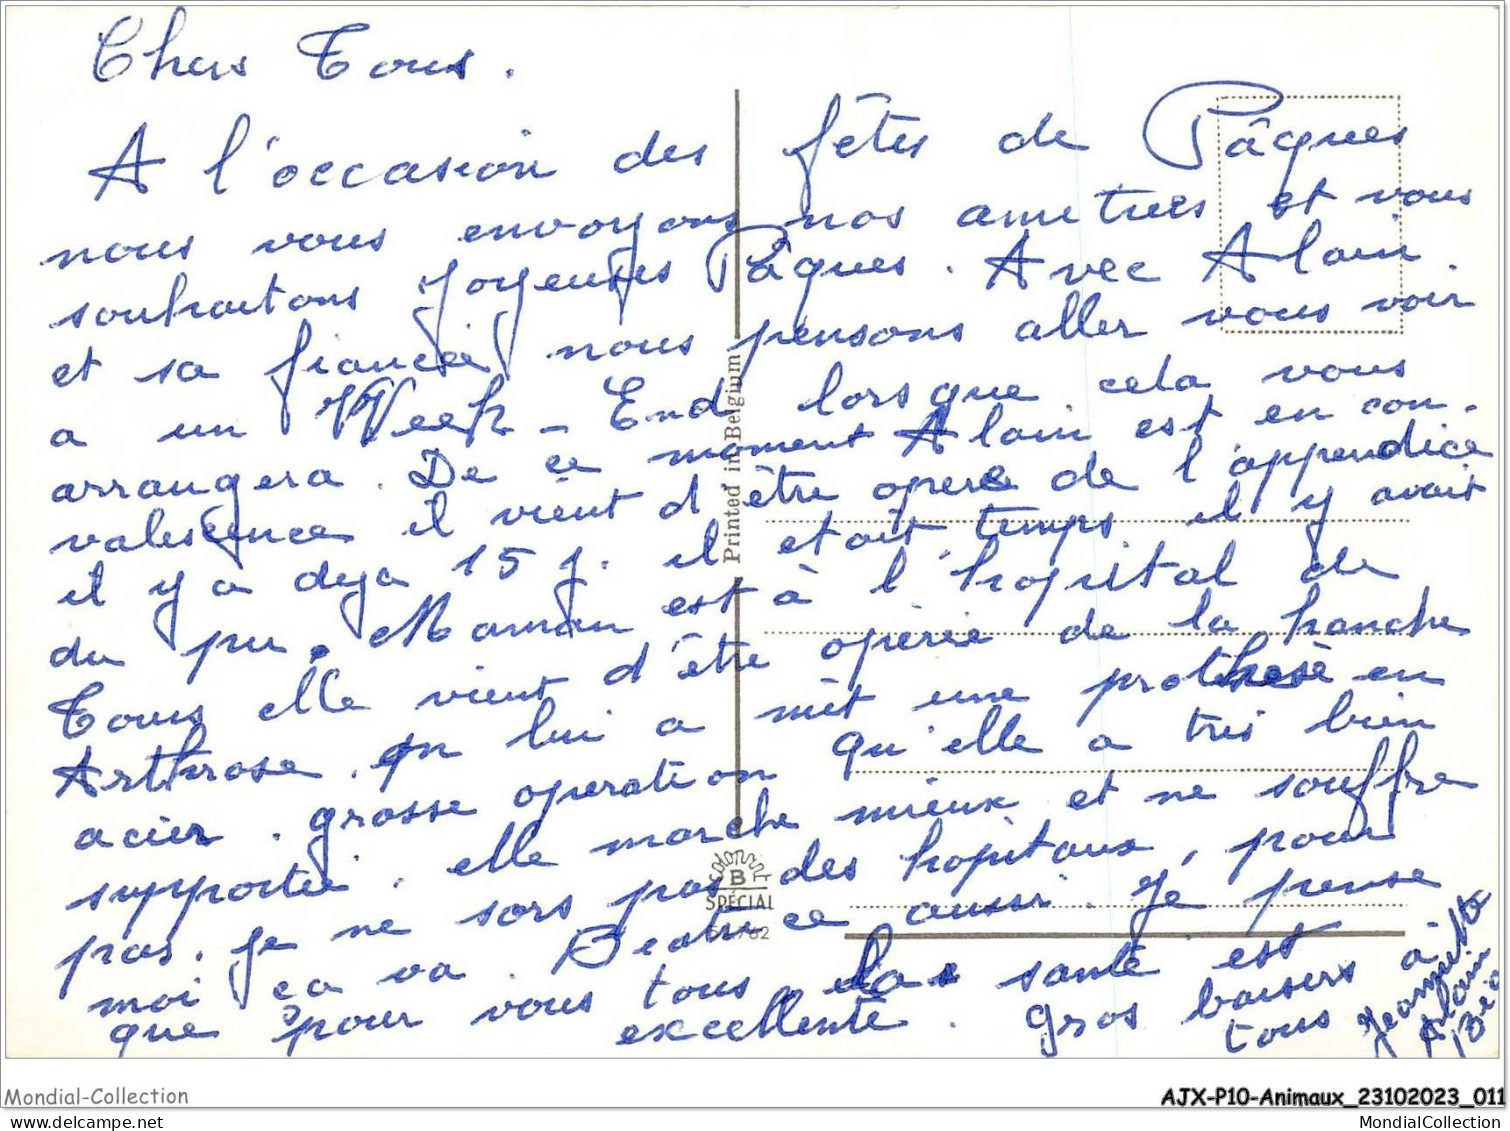 Chers Tous.
A l'occasion des fêtes de Pâques
nous vous envoyons nos amitiees et vous
souhaitons Joyeuses Pâques. Avec Alain.
et sa fiancée nous pensons aller vous voir
a un Week-End lorsque cela vous
arrangera. De ce moment Alain est en con-
valescence il vient d'être opere de l'appendice
il y a deja 15 j. il etait temps il y avait
du pu. Maman est à l'hopital de
Tours elle vient d'être opérée de la hanche
Arthrose. on lui a mit une prothesè en
acier. grosse operation qu'elle a très bien
supportée. elle marche mieux et ne souffre
pas. je ne sors pas des hopitaux, pour
moi ça va. Beatrice aussi. Je pense
que pour vous tous la santé est
excellente. Gros baisers à
tous Jeannette
Alain
Béa
Printed in Belgium
colorprint
B
SPECIAL
Mondial-Collection
AJX-P10-Animaux_23102023_011
www.mondial-collection.com
MondialCollection.com